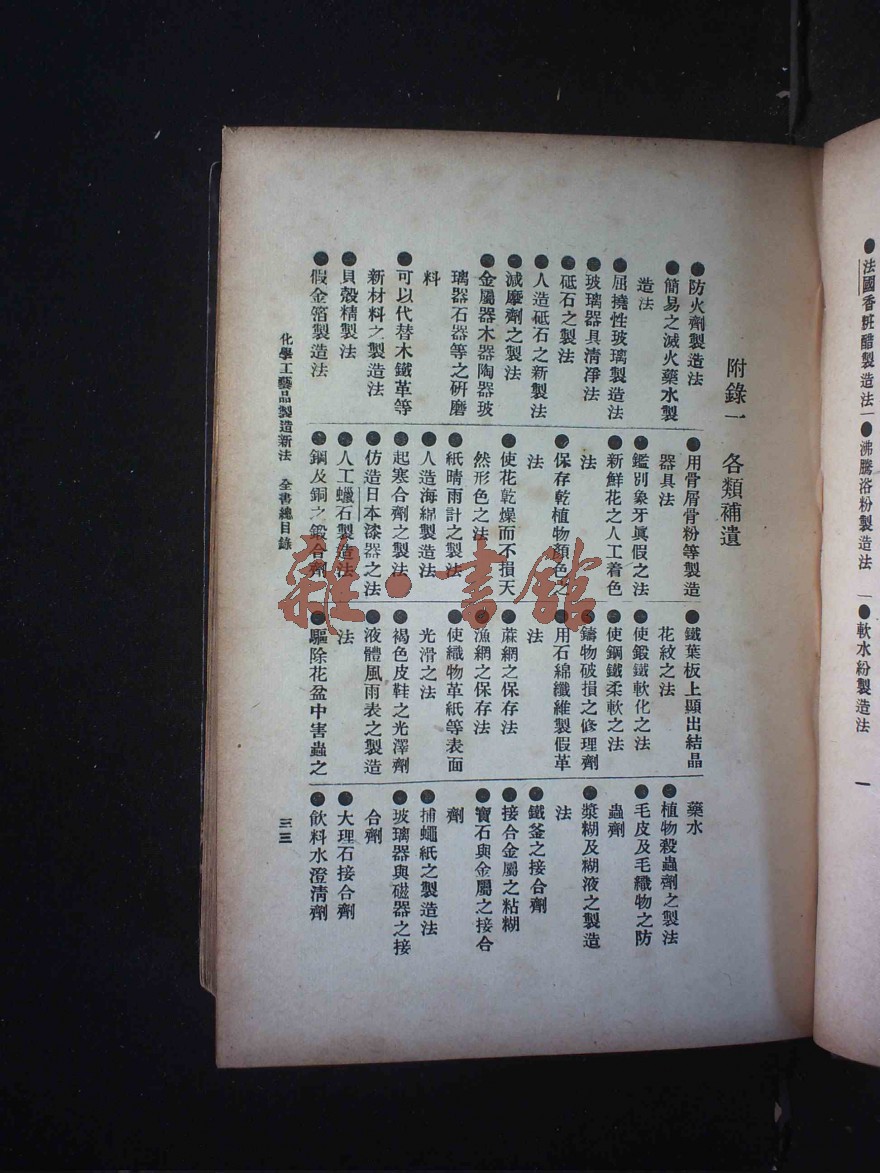 ●法國香粧醋製造法
●沸騰浴粉製造法
●軟水粉製造法
一
附錄一 各類補遺
●防火劑製造法
●簡易之滅火藥水製
造法
●屈撓性玻璃製造法
●玻璃器具清淨法
●砥石之製法
●人造砥石之新製法
●減摩劑之製法
●金屬器木器陶器玻
璃器石器等之研磨
料
●可以代替木鐵革等
新材料之製造法
●貝殼精製法
●假金箔製造法
●用骨屑骨粉等製造
器具法
●鑑別象牙眞假之法
●新鮮花之人工着色
法
●保存乾植物顏色之
法
●使花乾燥而不損天
然形色之法
●紙晴雨計之製法
●人造海綿製造法
●起寒合劑之製法
●仿造日本漆器之法
●人工蠟石製造法
●鋼及銅之鍛合劑
●鐵葉板上顯出結晶
花紋之法
●使鍛鐵軟化之法
●使鋼鐵柔軟之法
●鑄物破損之修理劑
●用石綿纖維製假革
法
●蔴網之保存法
●漁網之保存法
●使織物革紙等表面
光滑之法
●褐色皮鞋之光澤劑
●液體風雨表之製造
法
●驅除花盆中害蟲之
藥水
●植物殺蟲劑之製法
●毛皮及毛織物之防
蟲劑
●漿糊及糊液之製造
法
●鐵釜之接合劑
●接合金屬之粘糊
●寶石與金屬之接合
劑
●捕蠅紙之製造法
●玻璃器與磁器之接
合劑
●大理石接合劑
●飲料水澄清劑
化學工藝品製造新法 全書總目錄
三三
雜·書館